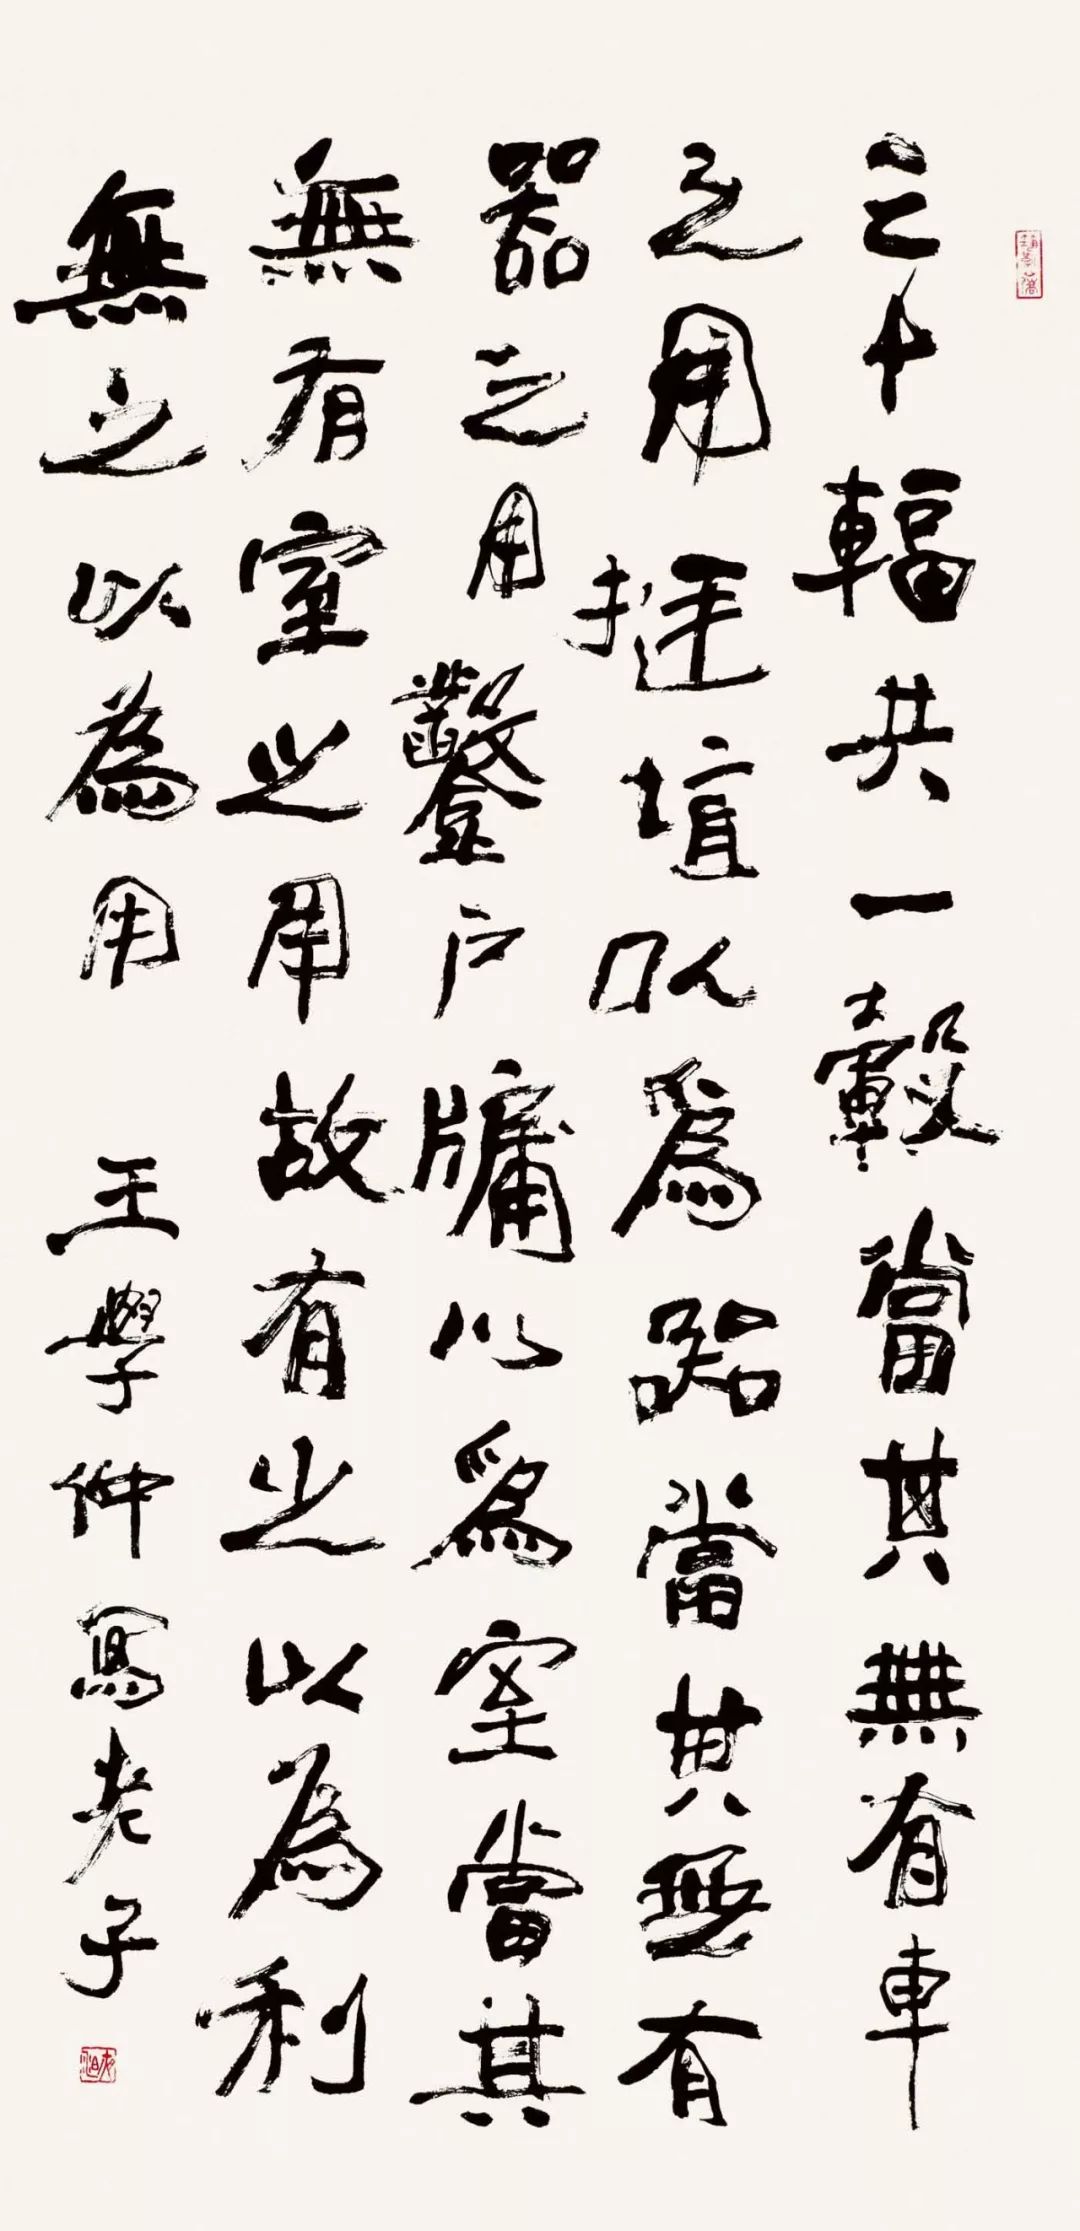 三十輻共一轂當其無有車
之用挻埴以爲器當其無有
器之用鑿戶牖以爲室當其
無有室之用故有之以為利
無之以為用 王學仲寫老子